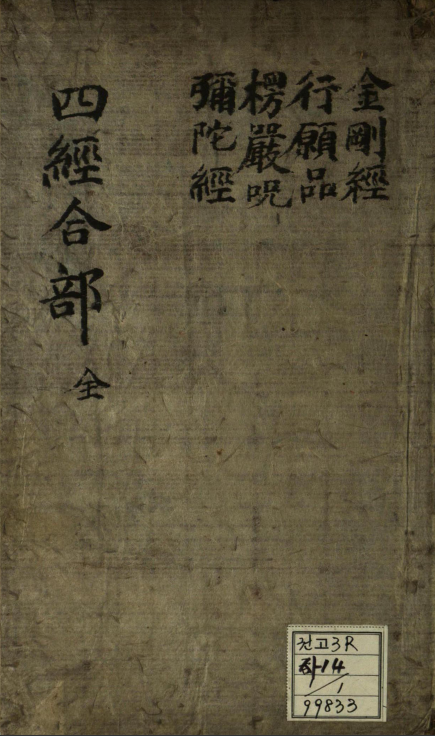 金剛經
行願品
楞嚴呪
彌陀經
四經合部 全
천고3R
자-14
/1
99833